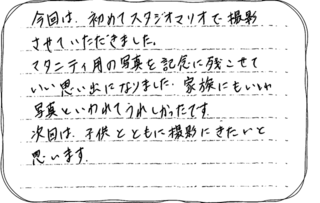 今回は、初めてスタジオマリオで撮影
させていただきました。
マタニティ用の写真を記念に残こせて
いい思い出になりました。家族にもいい
写真といわれてうれしかったです。
次回は、子供とともに撮影にきたいと
思います。